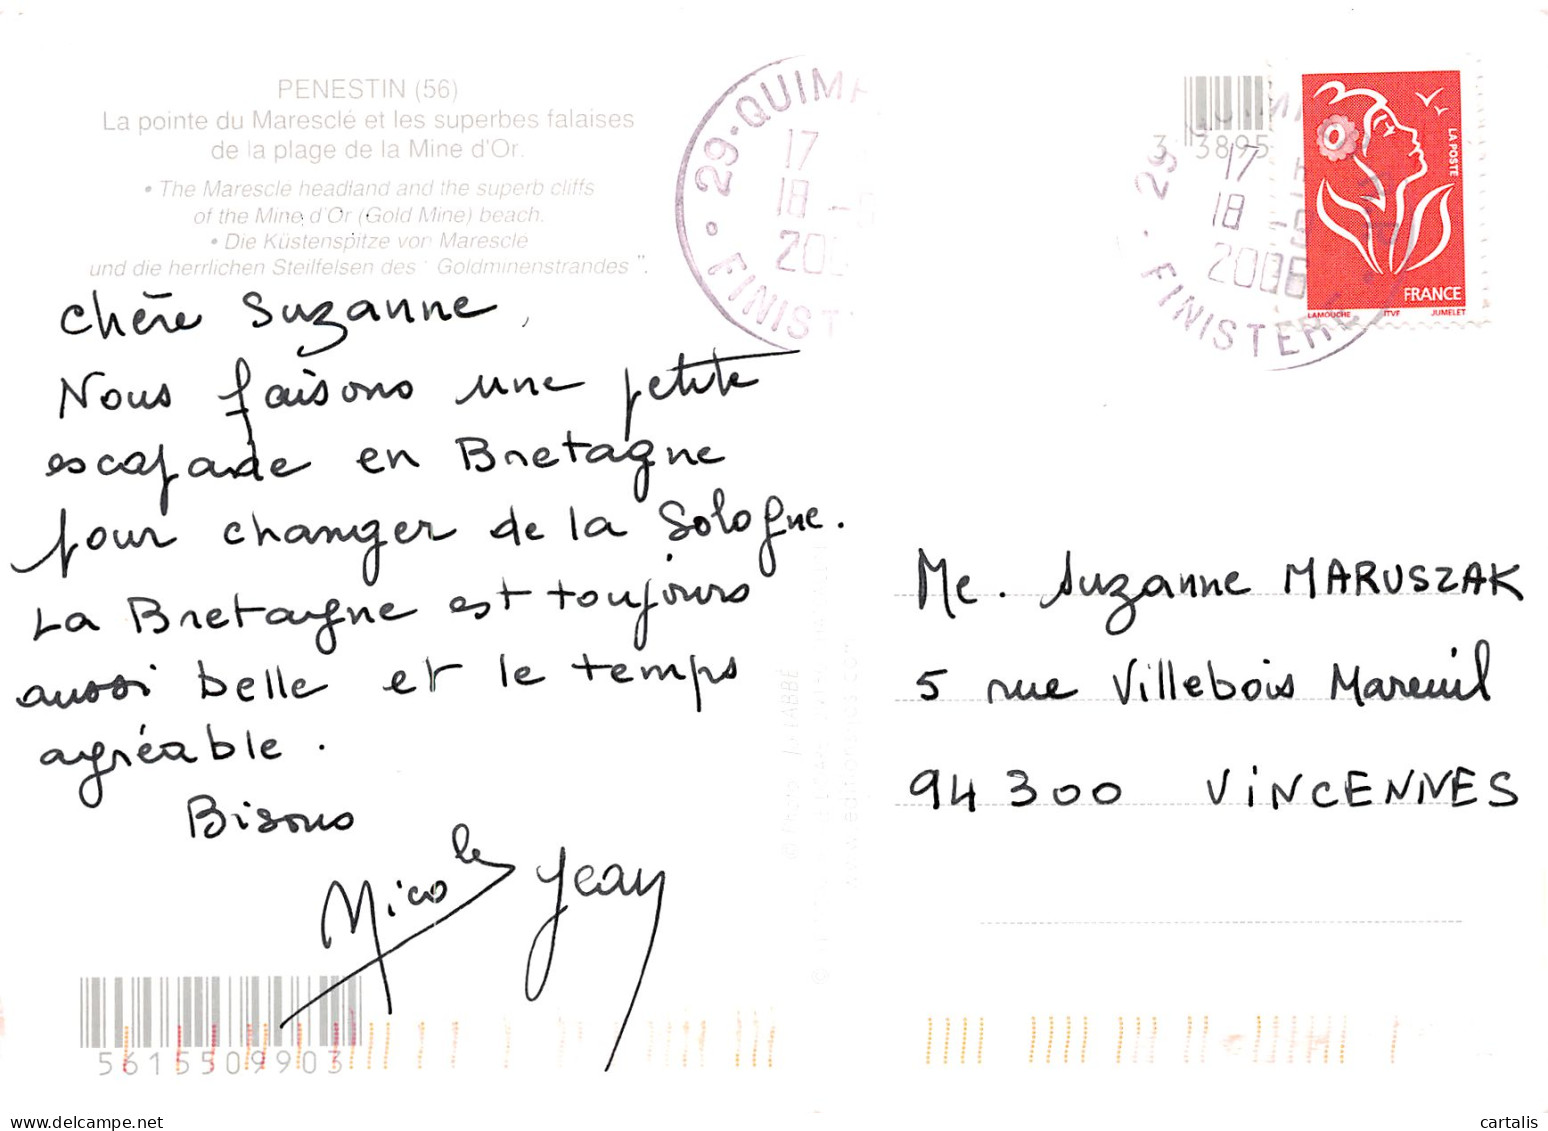 PENESTIN (56)
La pointe du Maresclé et les superbes falaises
de la plage de la Mine d'Or.
• The Maresclé headland and the superb cliffs
of the Mine d'Or (Gold Mine) beach.
• Die Küstenspitze von Maresclé
und die herrlichen Steilfelsen des "Goldminenstrandes".
Chère Suzanne,
Nous faisons une petite
escapade en Bretagne
pour changer de la Sologne.
La Bretagne est toujours
aussi belle et le temps
agréable.
Bisous
Nicole Jean
5615509903
29 - QUIMP
17
18 -
200
FINIST
3 3895
29
17
18
2006
FINISTERE
LA POSTE
FRANCE
LAMOUCHE ITVF JUMELET
Me. Suzanne MARUSZAK
5 rue Villebois Mareuil
94 300 VINCENNES
cartalis